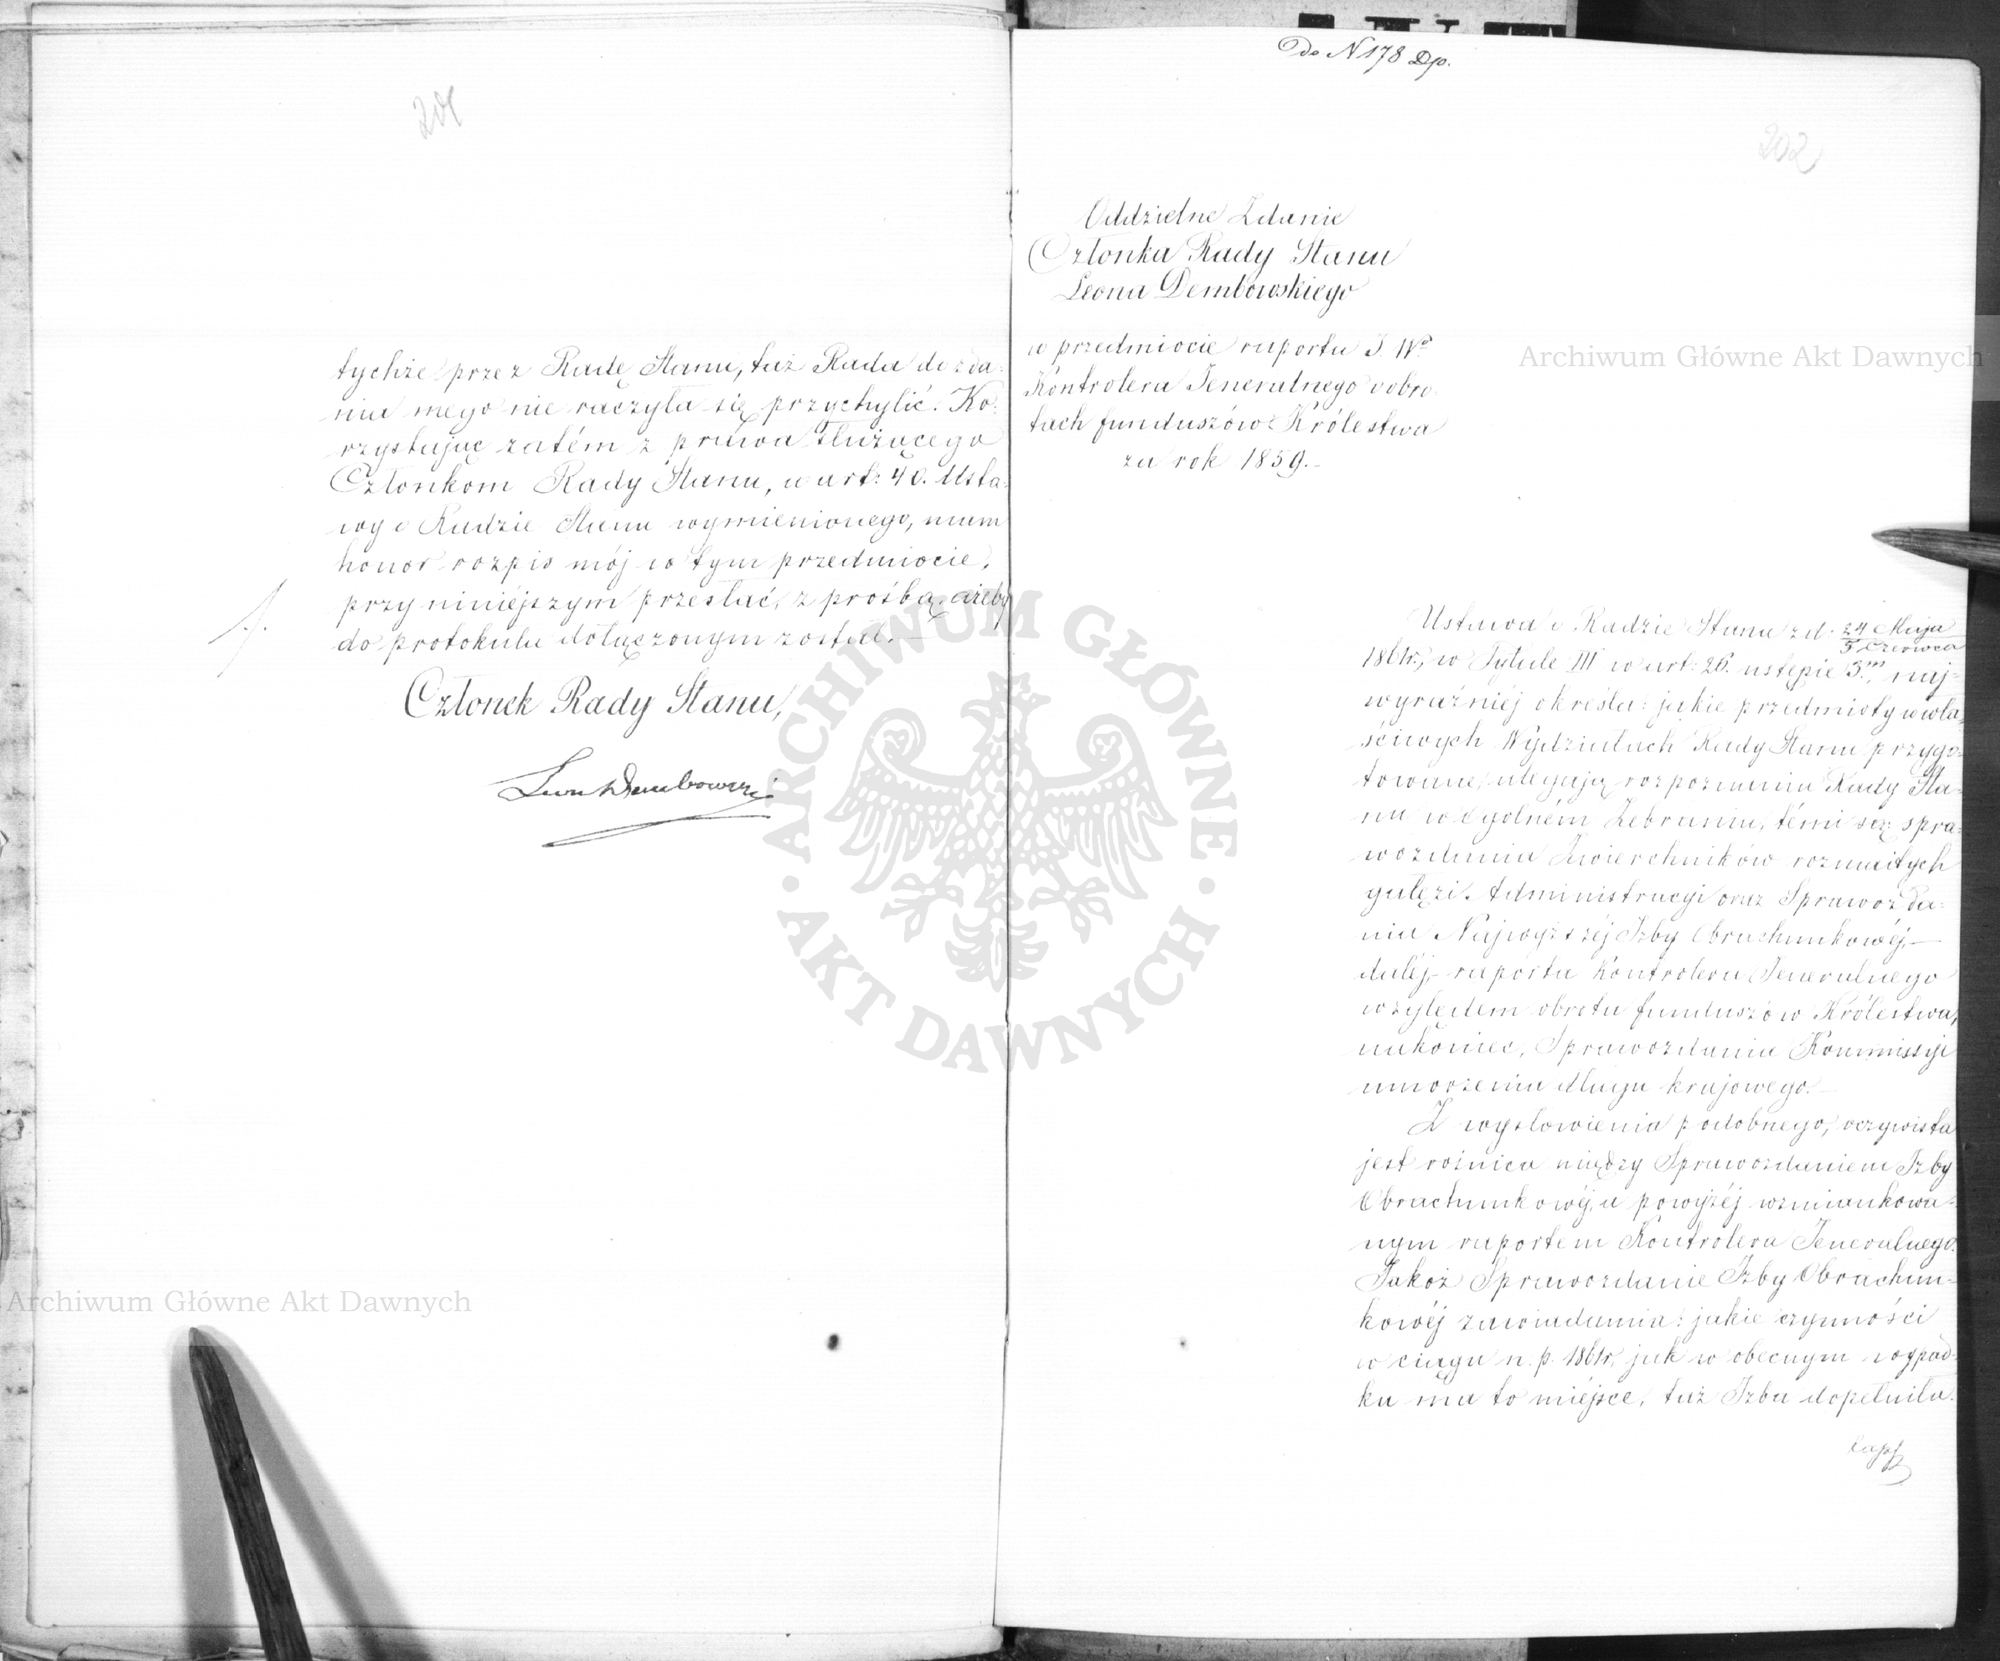 201
tychże przez Radę Stanu, taż Rada do zda-
nia mego nie raczyła się przychylić. Ko-
rzystając zatém z prawa służącego
Członkom Rady Stanu, w art: 40. Usta-
wy o Radzie Stanu wymienionego, mam
honor rozpis mój w tym przedmiocie,
przy niniéjszym przesłać, z prośbą, ażeby
do protokułu dołączonym został.
Członek Rady Stanu,
Leon Dembowski
Do N 178 Dp.
202
Oddzielne Zdanie
Członka Rady Stanu
Leona Dembowskiego
w przedmiocie raportu J. Wo
Kontrolera Jeneralnego o obro-
tach funduszów Królestwa
za rok 1859.
Ustawa o Radzie Stanu z d. 24 Maja
5 Czerwca
1861r., w Tytule III w art: 26. ustępie 3m, naj-
wyraźniéj określa: jakie przedmioty w wła-
ściwych Wydziałach Rady Stanu przygo-
towane, ulegają rozpoznaniu Rady Sta-
nu w Ogólném Zebraniu, témi są: spra-
wozdania Zwierchników rozmaitych
gałęzi Administracyi oraz Sprawozda-
nia Najwyższéj Izby Obrachunkowéj,
daléj, raportu Kontrolera Jeneralnego
względem obrotu funduszów Królestwa,
nakoniec, Sprawozdania Kommissyi
umorzenia długu krajowego.
Z wysłowienia podobnego, oczywista
jest różnica między Sprawozdaniem Izby
Obrachunkowéj, a powyżéj wzmiankowa-
nym raportem Kontrolera Jeneralnego.
Jakoż Sprawozdanie Izby Obrachun-
kowéj zawiadamia: jakie czynności
w ciągu n. p. 1861r, jak w obecnym wypad-
ku ma to miéjsce, taż Izba dopełniła.
Archiwum Główne Akt Dawnych
Archiwum Główne Akt Dawnych
ARCHIWUM GŁÓWNE AKT DAWNYCH